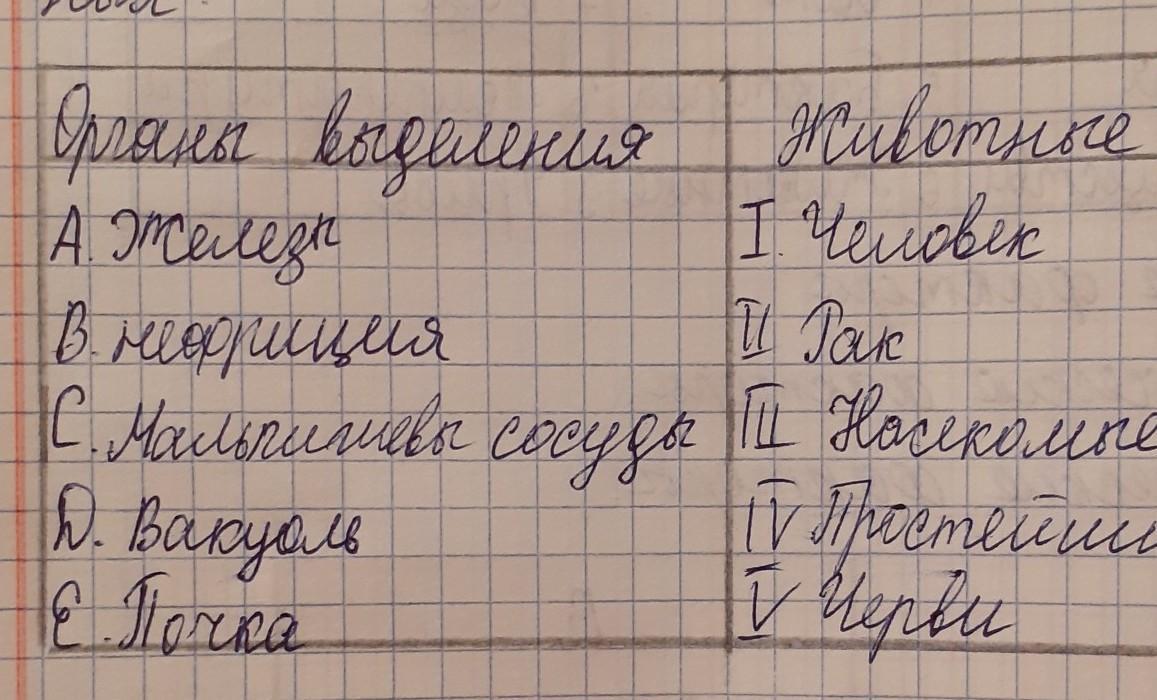 Органы выделения Животные
А. Железы I. Человек
В. нефриция II Рак
С. Мальпигиевы сосуды III Насекомые
D. Вакуоль IV Простейши
Е. Почка V Черви